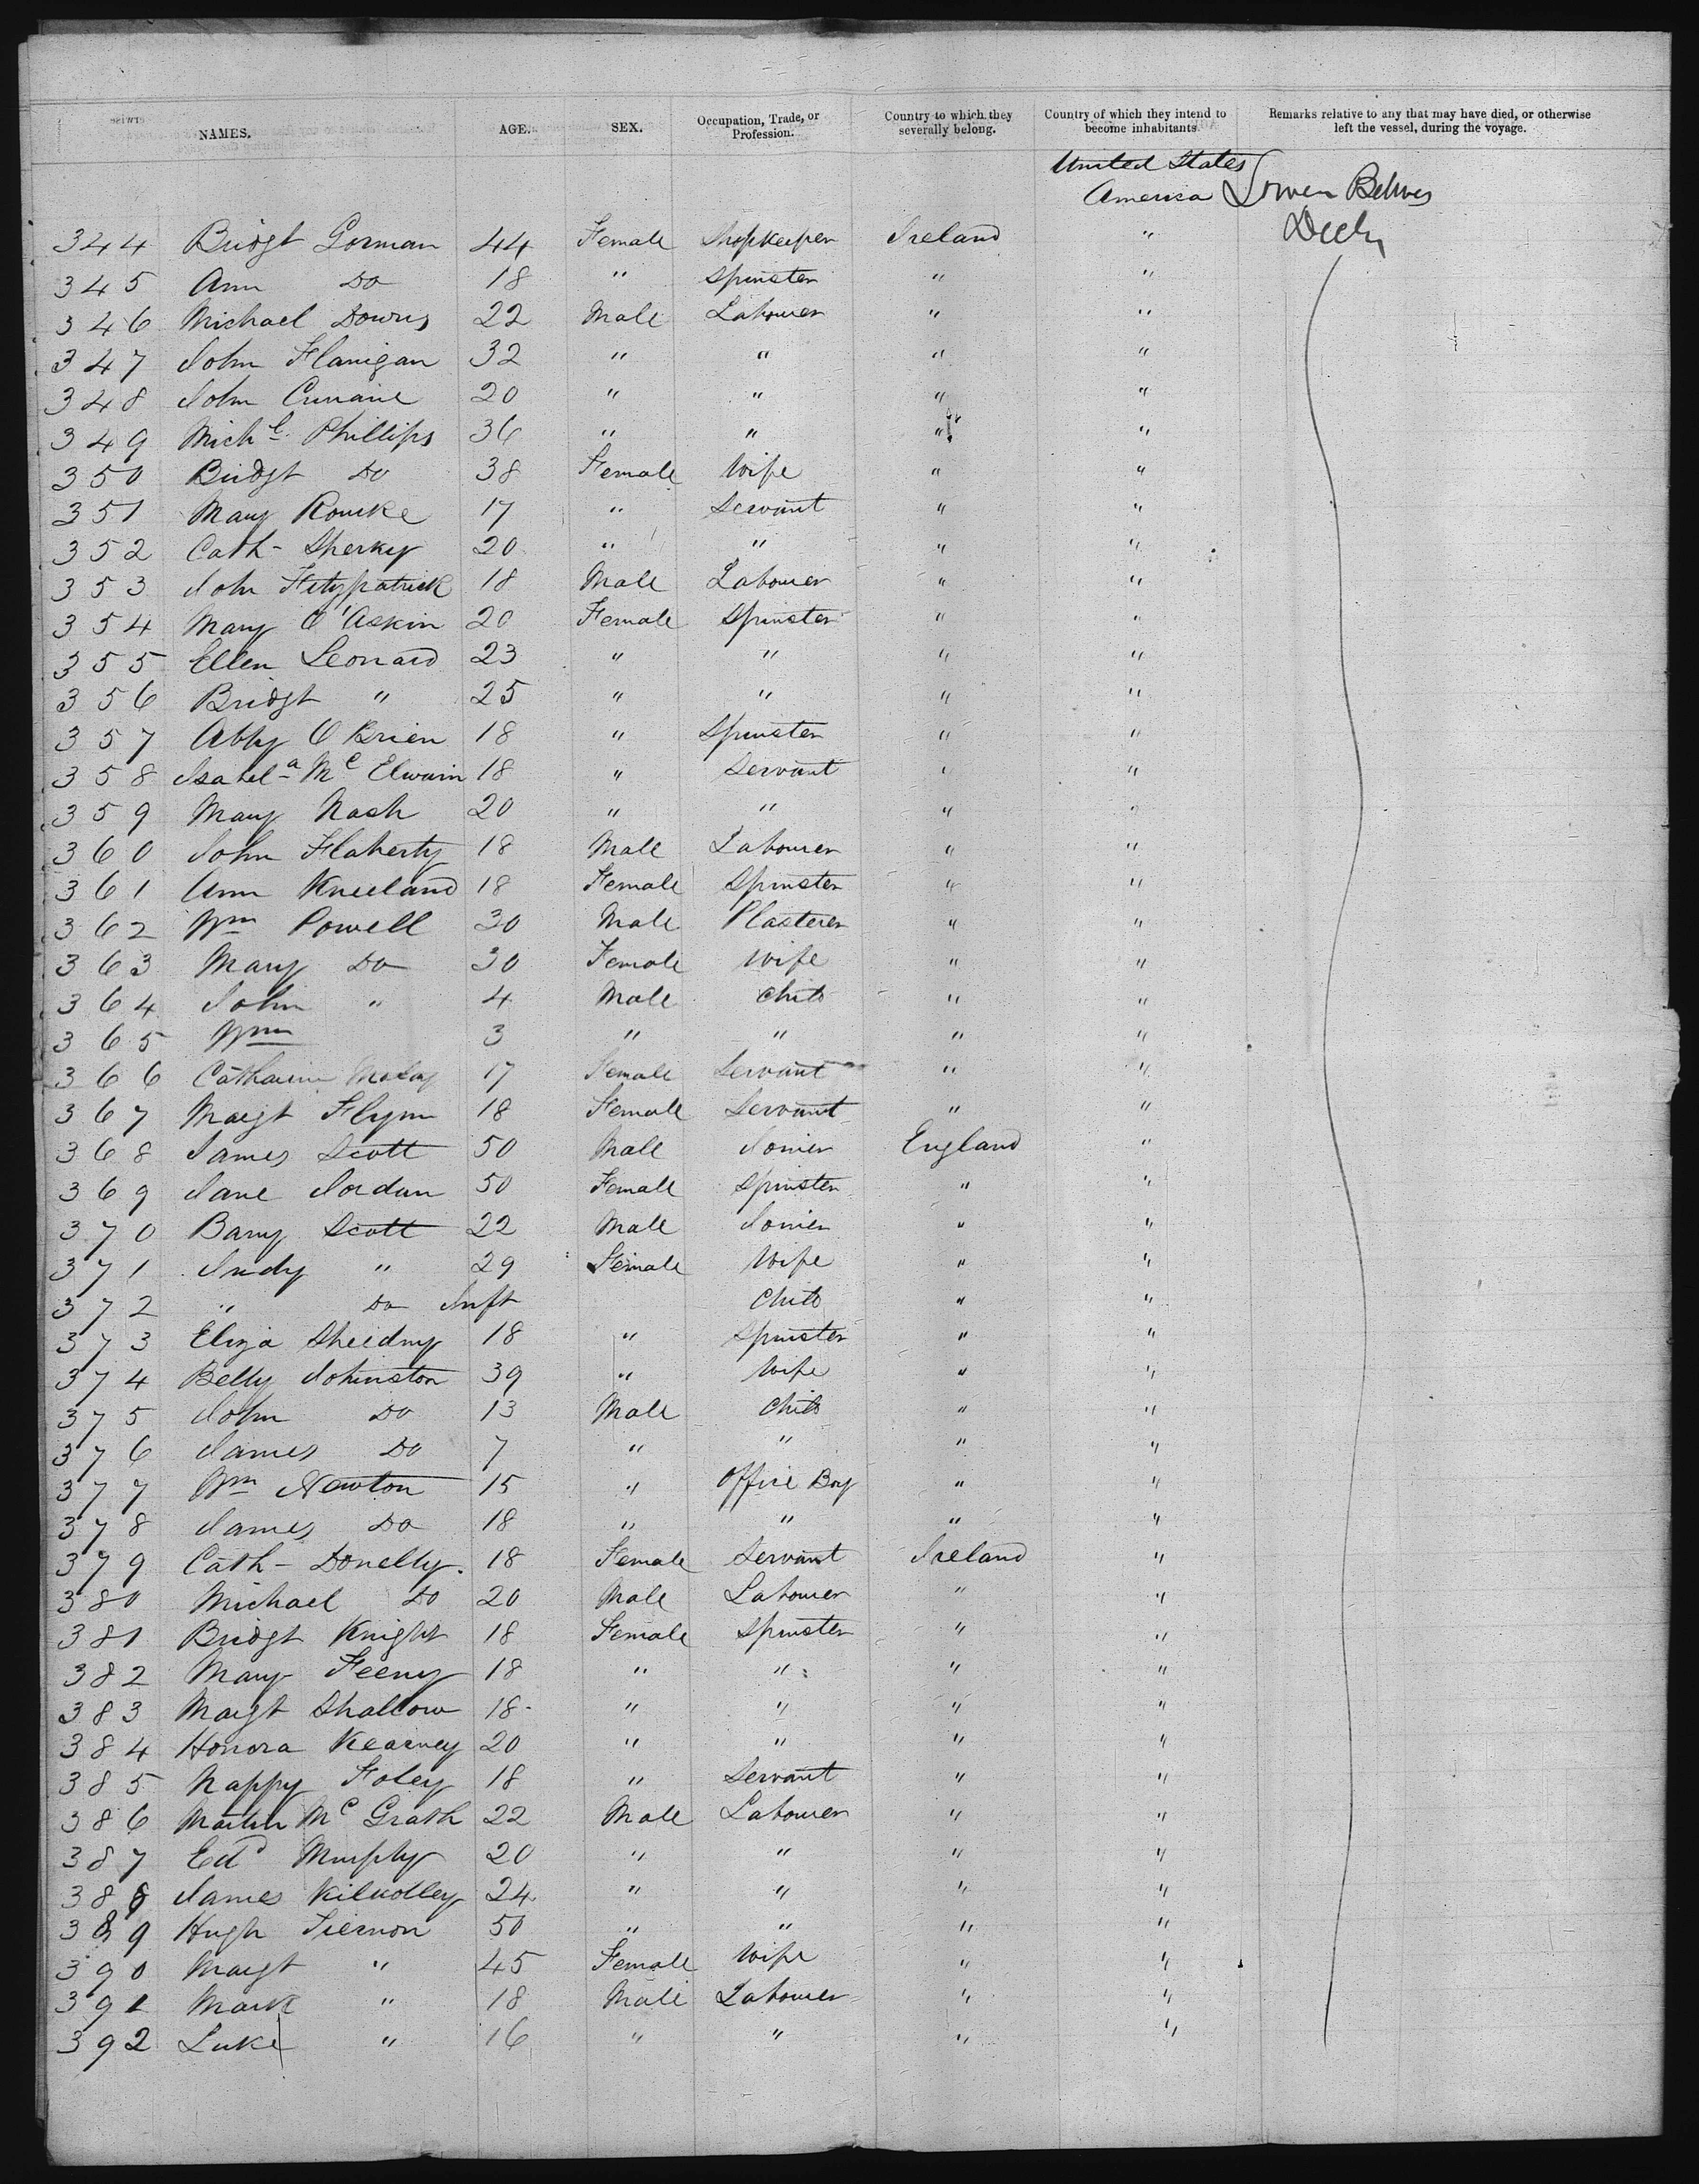 NAMES. AGE. SEX. Occupation, Trade, or Profession. Country to which they severally belong. Country of which they intend to become inhabitants. Remarks relative to any that may have died, or otherwise left the vessel, during the voyage.
United States
America Lower Between
Decks
344 Bridgt Gorman 44 Female Shopkeeper Ireland "
345 Ann Do 18 " Spinster " "
346 Michael Downs 22 Male Labourer " "
347 John Flanigan 32 " " " "
348 John Cunane 20 " " " "
349 Michl. Phillips 36 " " " "
350 Bridgt Do 38 Female Wife " "
351 Mary Rourke 17 " Servant " "
352 Cath- Sherky 20 " " " "
353 John Fitzpatrick 18 Male Labourer " "
354 Mary O'Askin 20 Female Spinster " "
355 Ellen Leonard 23 " " " "
356 Bridgt " 25 " " " "
357 Abby O Brien 18 " Spinster " "
358 Isabela Mc Elwain 18 " Servant " "
359 Mary Nash 20 " " " "
360 John Flaherty 18 Male Labourer " "
361 Ann Kneeland 18 Female Spinster " "
362 Wm Powell 30 Male Plasterer " "
363 Mary Do 30 Female Wife " "
364 John " 4 Male Child " "
365 Wm 3 " " " "
366 Catharine 17 Female Servant " "
367 Margt Flynn 18 Female Servant " "
368 James Scott 50 Male Joiner England "
369 Jane Jordan 50 Female Spinster " "
370 Barry Scott 22 Male Joiner " "
371 Judy " 29 Female Wife " "
372 " Do Inft Child " "
373 Eliza 18 " Spinster " "
374 Betty Johnston 39 " Wife " "
375 John Do 13 Male Child " "
376 James Do 7 " " " "
377 Wm Newton 15 " Office Boy " "
378 James Do 18 " " " "
379 Cath- Donelly. 18 Female Servant Ireland "
380 Michael Do 20 Male Labourer " "
381 Bridgt Knight 18 Female Spinster " "
382 Mary Feeny 18 " " " "
383 Margt Shallow 18 " " " "
384 Honora Kearney 20 " " " "
385 Nappy Foley 18 " Servant " "
386 Martin Mc Grath 22 Male Labourer " "
387 Edd Murphy 20 " " " "
388 James Kilkolley 24 " " " "
389 Hugh Tiernon 50 " " " "
390 Margt " 45 Female Wife " "
391 Mark " 18 Male Labourer " "
392 Luke " 16 " " " "